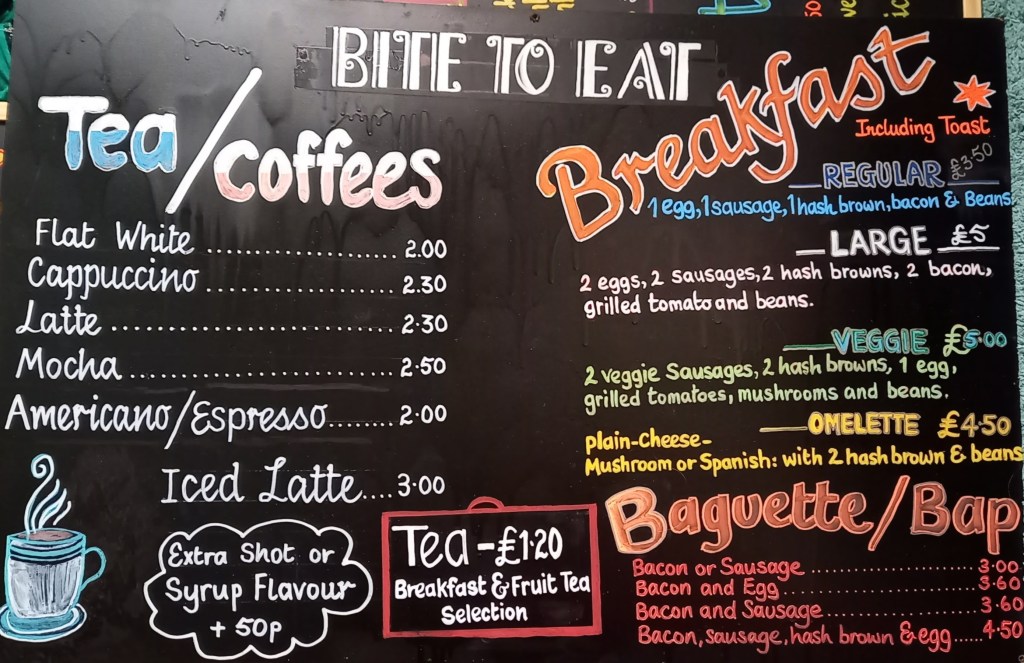 BITE TO EAT
Tea/Coffees
Flat White ........................ 2.00
Cappuccino ........................ 2.30
Latte ........................ 2.30
Mocha ........................ 2.50
Americano/Espresso........ 2.00
Iced Latte.... 3.00
Extra Shot or
Syrup Flavour
+ 50p
Tea - £1.20
Breakfast & Fruit Tea
Selection
Breakfast
Including Toast
REGULAR £3.50
1 egg, 1 sausage, 1 hash brown, bacon & Beans
LARGE £5
2 eggs, 2 sausages, 2 hash browns, 2 bacon,
grilled tomato and beans.
VEGGIE £5.00
2 veggie Sausages, 2 hash browns, 1 egg,
grilled tomatoes, mushrooms and beans.
OMELETTE £4.50
plain-Cheese-
Mushroom or Spanish: with 2 hash brown & beans
Baguette/Bap
Bacon or Sausage ........................ 3.00
Bacon and Egg ........................ 3.60
Bacon and Sausage ........................ 3.60
Bacon, sausage, hash brown & egg..... 4.50